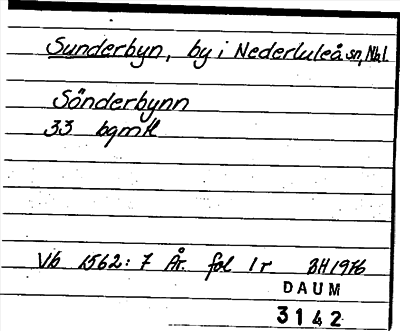 Sunderbyn, by i Nederluleå sn, Nbl
Sönderbynn
33 bqmtl
Vb 1562: 7 År. fol 1 r BH 1976
DAUM
3142